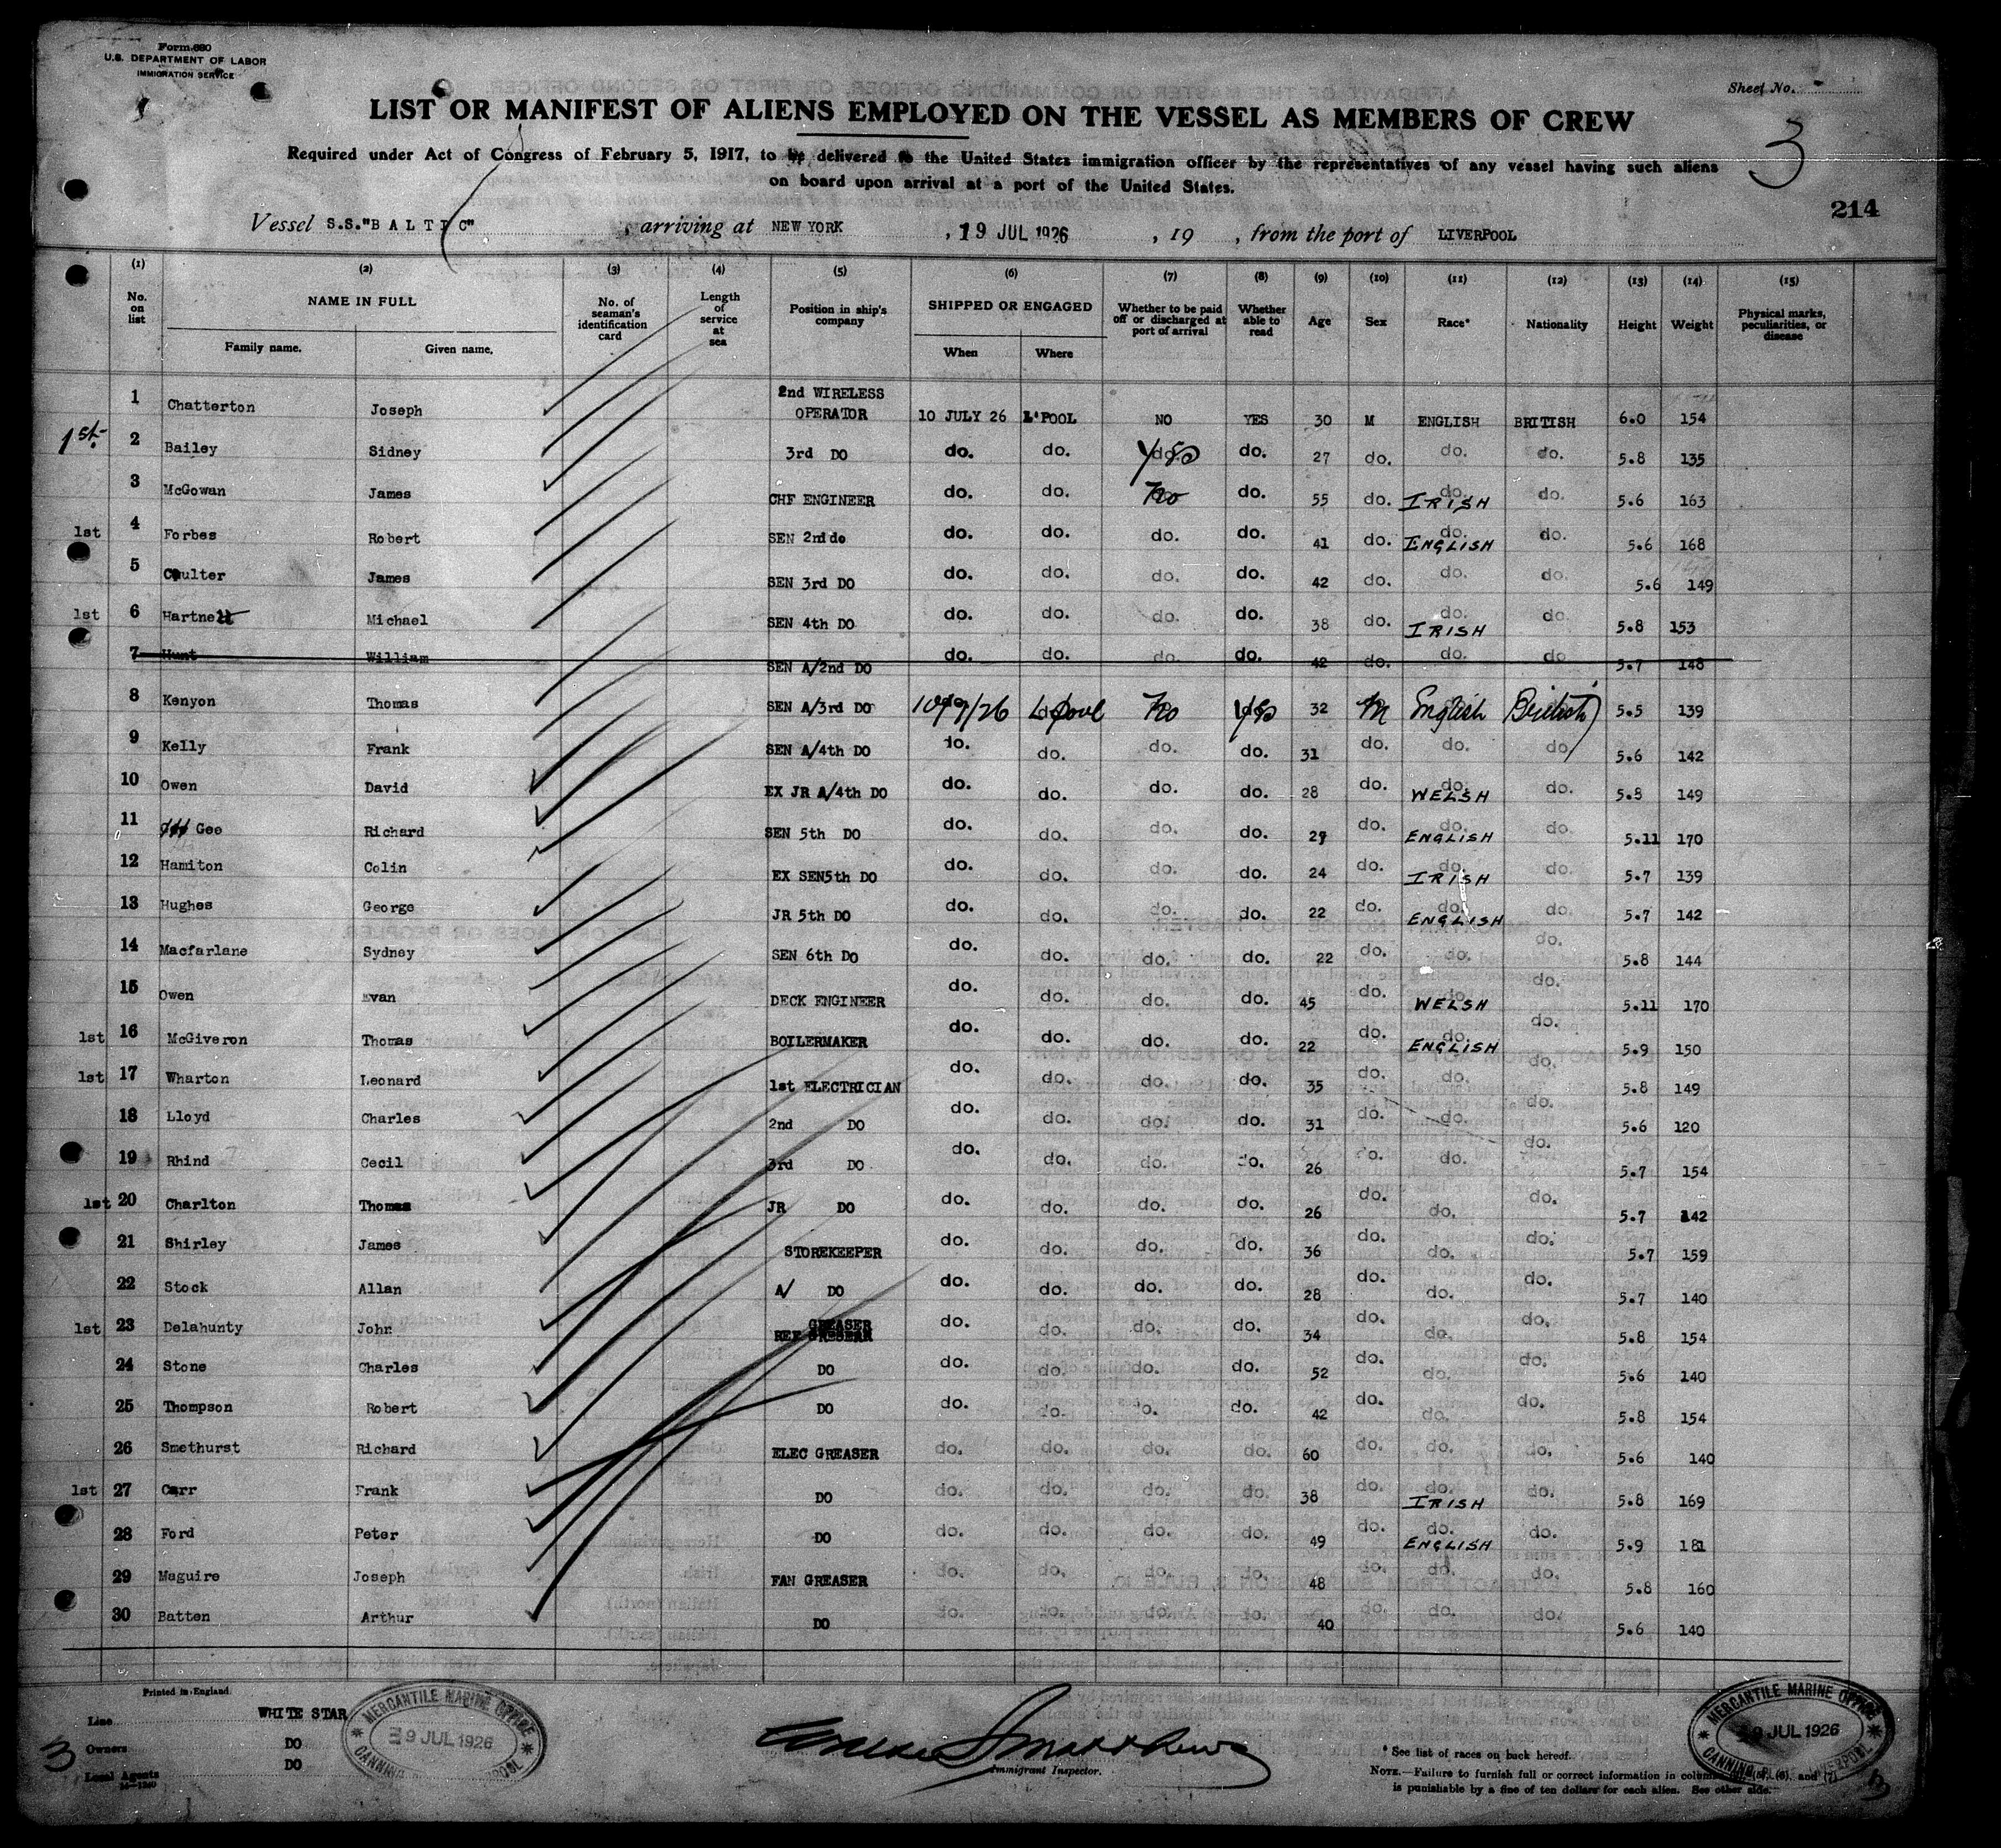 Form 680
U.S. DEPARTMENT OF LABOR
IMMIGRATION SERVICE
Sheet No.
3
LIST OR MANIFEST OF ALIENS EMPLOYED ON THE VESSEL AS MEMBERS OF CREW
Required under Act of Congress of February 5, 1917, to be delivered to the United States immigration officer by the representatives of any vessel having such aliens
on board upon arrival at a port of the United States.
214
Vessel S.S."BALTIC" arriving at NEW YORK, 19 JUL 1926, 19 , from the port of LIVERPOOL
(1) (2) (3) (4) (5) (6) (7) (8) (9) (10) (11) (12) (13) (14) (15)
No. on list NAME IN FULL Family name. Given name. No. of seaman's identification card Length of service at sea Position in ship's company SHIPPED OR ENGAGED When Where Whether to be paid off or discharged at port of arrival Whether able to read Age Sex Race* Nationality Height Weight Physical marks, peculiarities, or disease
1 Chatterton Joseph 2nd WIRELESS OPERATOR 10 JULY 26 L'POOL NO YES 30 M ENGLISH BRITISH 6.0 154
1st 2 Bailey Sidney 3rd DO do. do. do. yes do. 27 do. do. do. 5.8 135
3 McGowan James CHF ENGINEER do. do. No do. 55 do. do. IRISH do. 5.6 163
1st 4 Forbes Robert SEN 2nd do do. do. do. do. 41 do. do. ENGLISH do. 5.6 168
5 Coulter James SEN 3rd DO do. do. do. do. 42 do. do. do. 5.6 149
1st 6 Hartnett Michael SEN 4th DO do. do. do. do. 38 do. do. IRISH do. 5.8 153
7 Hunt William SEN A/2nd DO do. do. do. do. 42 do. do. do 5.7 148
8 Kenyon Thomas SEN A/3rd DO 10/7/26 L'pool No yes 32 M English British 5.5 139
9 Kelly Frank SEN A/4th DO do. do. do. do. 31 do. do. do. 5.6 142
10 Owen David EX JR A/4th DO do. do. do. do. 28 do. do. WELSH do. 5.8 149
11 Gee Richard SEN 5th DO do. do. do. do. 27 do. do. ENGLISH do. 5.11 170
12 Hamiton Colin EX SEN5th DO do. do. do. do. 24 do. do. IRISH do. 5.7 139
13 Hughes George JR 5th DO do. do. do. do. 22 do. do. ENGLISH do. 5.7 142
14 Macfarlane Sydney SEN 6th DO do. do. do. do. 22 do. do. do. 5.8 144
15 Owen Evan DECK ENGINEER do. do. do. do. 45 do. do. WELSH do. 5.11 170
1st 16 McGiveron Thomas BOILERMAKER do. do. do. do. 22 do. do. ENGLISH do. 5.9 150
1st 17 Wharton Leonard 1st ELECTRICIAN do. do. do. do. 35 do. do. do. 5.8 149
18 Lloyd Charles 2nd DO do. do. do. do. 31 do. do. do. 5.6 120
19 Rhind Cecil 3rd DO do. do. do. do. 26 do. do. do. 5.7 154
1st 20 Charlton Thomas JR DO do. do. do. do. 26 do. do. do. 5.7 142
21 Shirley James STOREKEEPER do. do. do. do. 36 do. do. do. 5.7 159
22 Stock Allan A/ DO do. do. do. do. 28 do. do. do. 5.7 140
1st 23 Delahunty John REF GREASER do. do. do. do. 34 do. do. do. 5.8 154
24 Stone Charles DO do. do. do. do. 52 do. do. do. 5.6 140
25 Thompson Robert DO do. do. do. do. 42 do. do. do. 5.8 154
26 Smethurst Richard ELEC GREASER do. do. do. do. 60 do. do. do. 5.6 140
1st 27 Carr Frank DO do. do. do. do. 38 do. do. IRISH do. 5.8 169
28 Ford Peter DO do. do. do. do. 49 do. do. ENGLISH do. 5.9 181
29 Maguire Joseph FAN GREASER do. do. do. do. 48 do. do. do. 5.8 160
30 Batten Arthur DO do. do. do. do. 40 do. do. do. 5.6 140
Printed in England.
Line WHITE STAR
Owners DO
Local Agents DO
14-1240
3
MERCANTILE MARINE OFFICE
9 JUL 1926
CANNING
Immigrant Inspector.
MERCANTILE MARINE OFFICE
9 JUL 1926
CANNING PL. LIVERPOOL
* See list of races on back hereof.
NOTE.—Failure to furnish full or correct information in columns (5), (6), and (7)
is punishable by a fine of ten dollars for each alien. See other side.
3